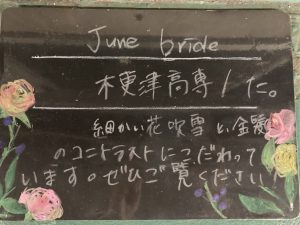 June bride
木更津高専1た。
細かい花吹雪と、金髪
のコントラストにこだわって
います。ぜひご覧ください